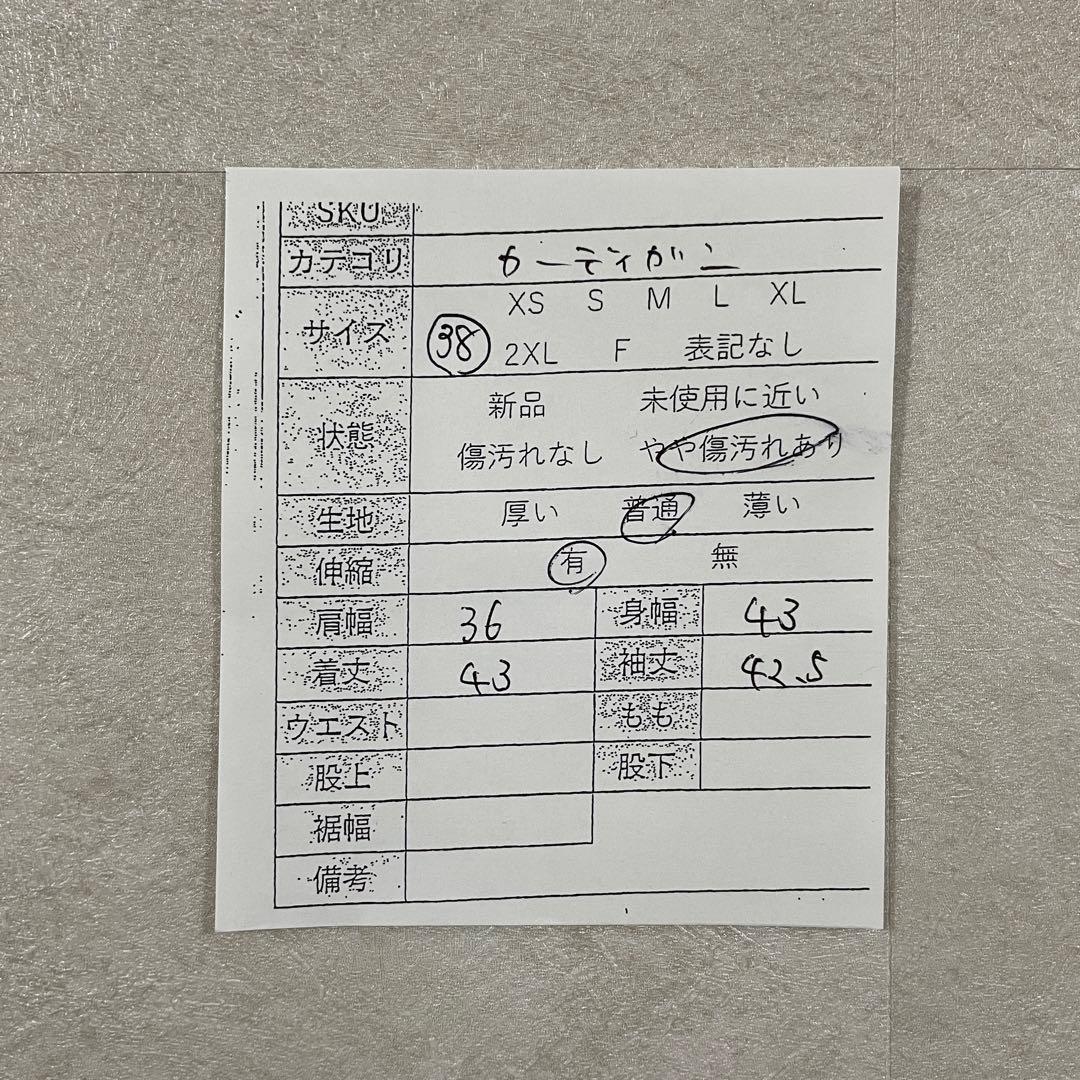 SKU
カテゴリ カーディガン
XS S M L XL
サイズ 38 2XL F 表記なし
新品 未使用に近い
状態
傷汚れなし やや傷汚れあり
生地 厚い 普通 薄い
伸縮 有 無
肩幅 36 身幅 43
着丈 43 袖丈 42.5
ウエスト もも
股上 股下
裾幅
備考